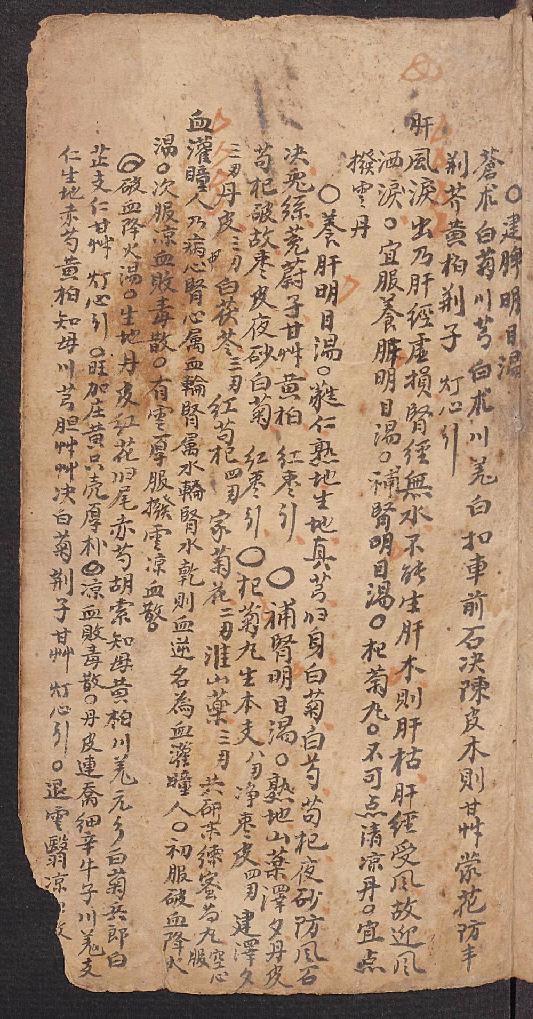 〇建脾明目湯
蒼朮白菊川芎白朮川羌白扣車前石决陳皮木則甘艸蒙花防丰
荆芥黄柏荆子 灯心引
肝風淚出乃肝經虛損腎經無水不能生肝木則肝枯肝經受風故迎風
洒淚〇宜服養肝明目湯〇補腎明目湯〇杞菊丸〇不可点清凉丹〇宜点
撥雲丹
〇養肝明目湯〇蕤仁熟地生地真芎归身白菊白芍苟杞夜砂防風石
决兎絲茺蔚子甘艸黄柏 紅枣引 〇補腎明目湯〇熟地山藥澤夕丹皮
苟杞破故枣皮夜砂白菊 紅枣引〇杞菊丸生本支八刃净枣皮四刃建澤夕
三刃丹皮三刃白茯苓三刃紅苟杞四刃 家菊花二刃淮山藥三刃 共研末煉蜜为丸空心服
血灌瞳人乃病心腎心属血輪腎属水輪腎水乾則血逆名為血灌瞳人〇初服破血降火
湯〇次服凉血敗毒散〇有雲厚服撥雲凉血散〇
〇破血降火湯〇生地丹皮紅花归尾赤芍胡索知母黄柏川羌元参白菊兵郎白
芷支仁甘艸 灯心引〇旺加庄黄只壳厚朴〇凉血敗毒散〇丹皮連喬細辛牛子川羌支
仁生地赤芍黄柏知母川芎胆艸艸决白菊荆子甘艸 灯心引〇退雲翳凉